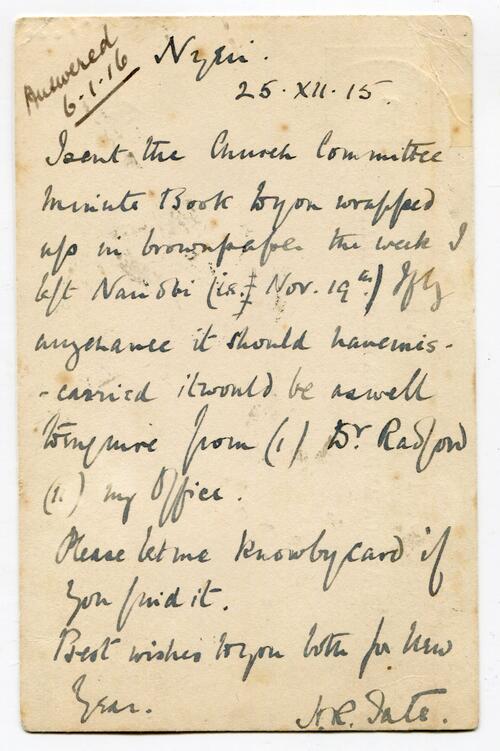 Answered
6.1.16
Nyeri.
25.XII.15.
I sent the Church Committee
Minute Book to you wrapped
up in brown paper the week I
left Nairobi (i.e. Nov. 19th) If by
any chance it should have mis-
-carried it would be as well
to enquire from (1) Dr Radford
(11) my Office.
Please let me know by card if
you find it.
Best wishes to you both for New
Year.
H.R. Tate.